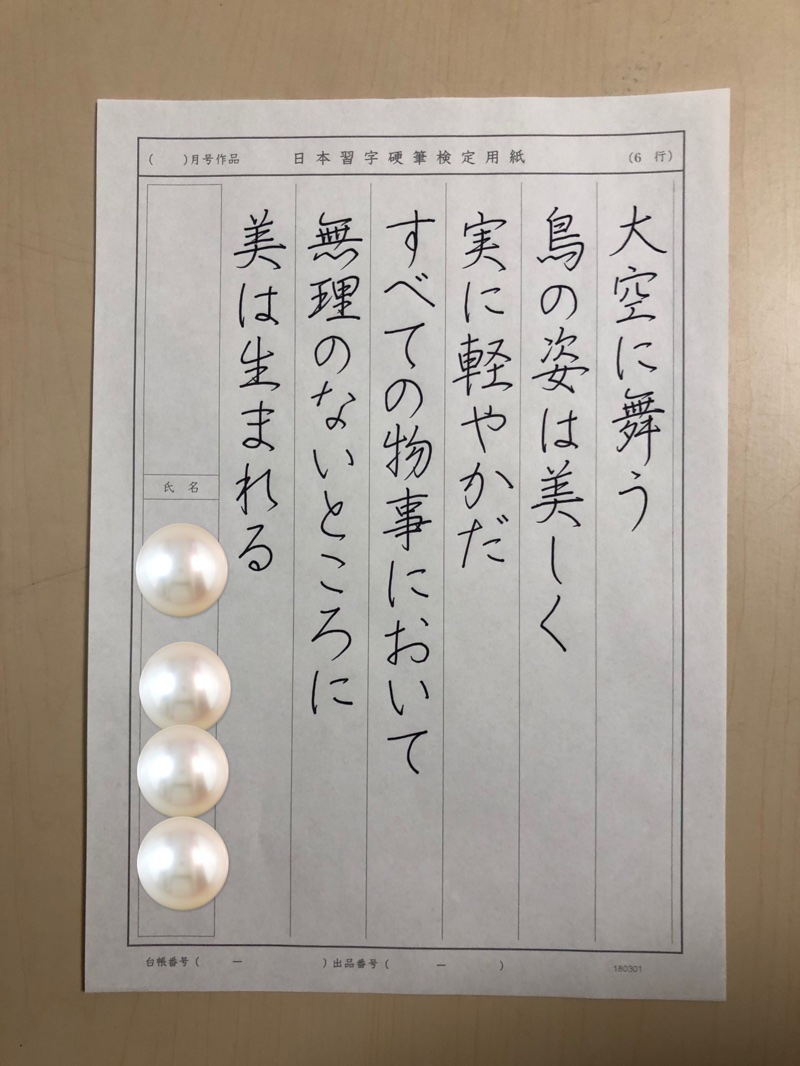 （　　）月号作品　日本習字硬筆検定用紙　（6　行）
大空に舞う
鳥の姿は美しく
実に軽やかだ
すべての物事において
無理のないところに
美は生まれる
氏　名
台帳番号（　　ー　　　　）出品番号（　　ー　　　　）
180301